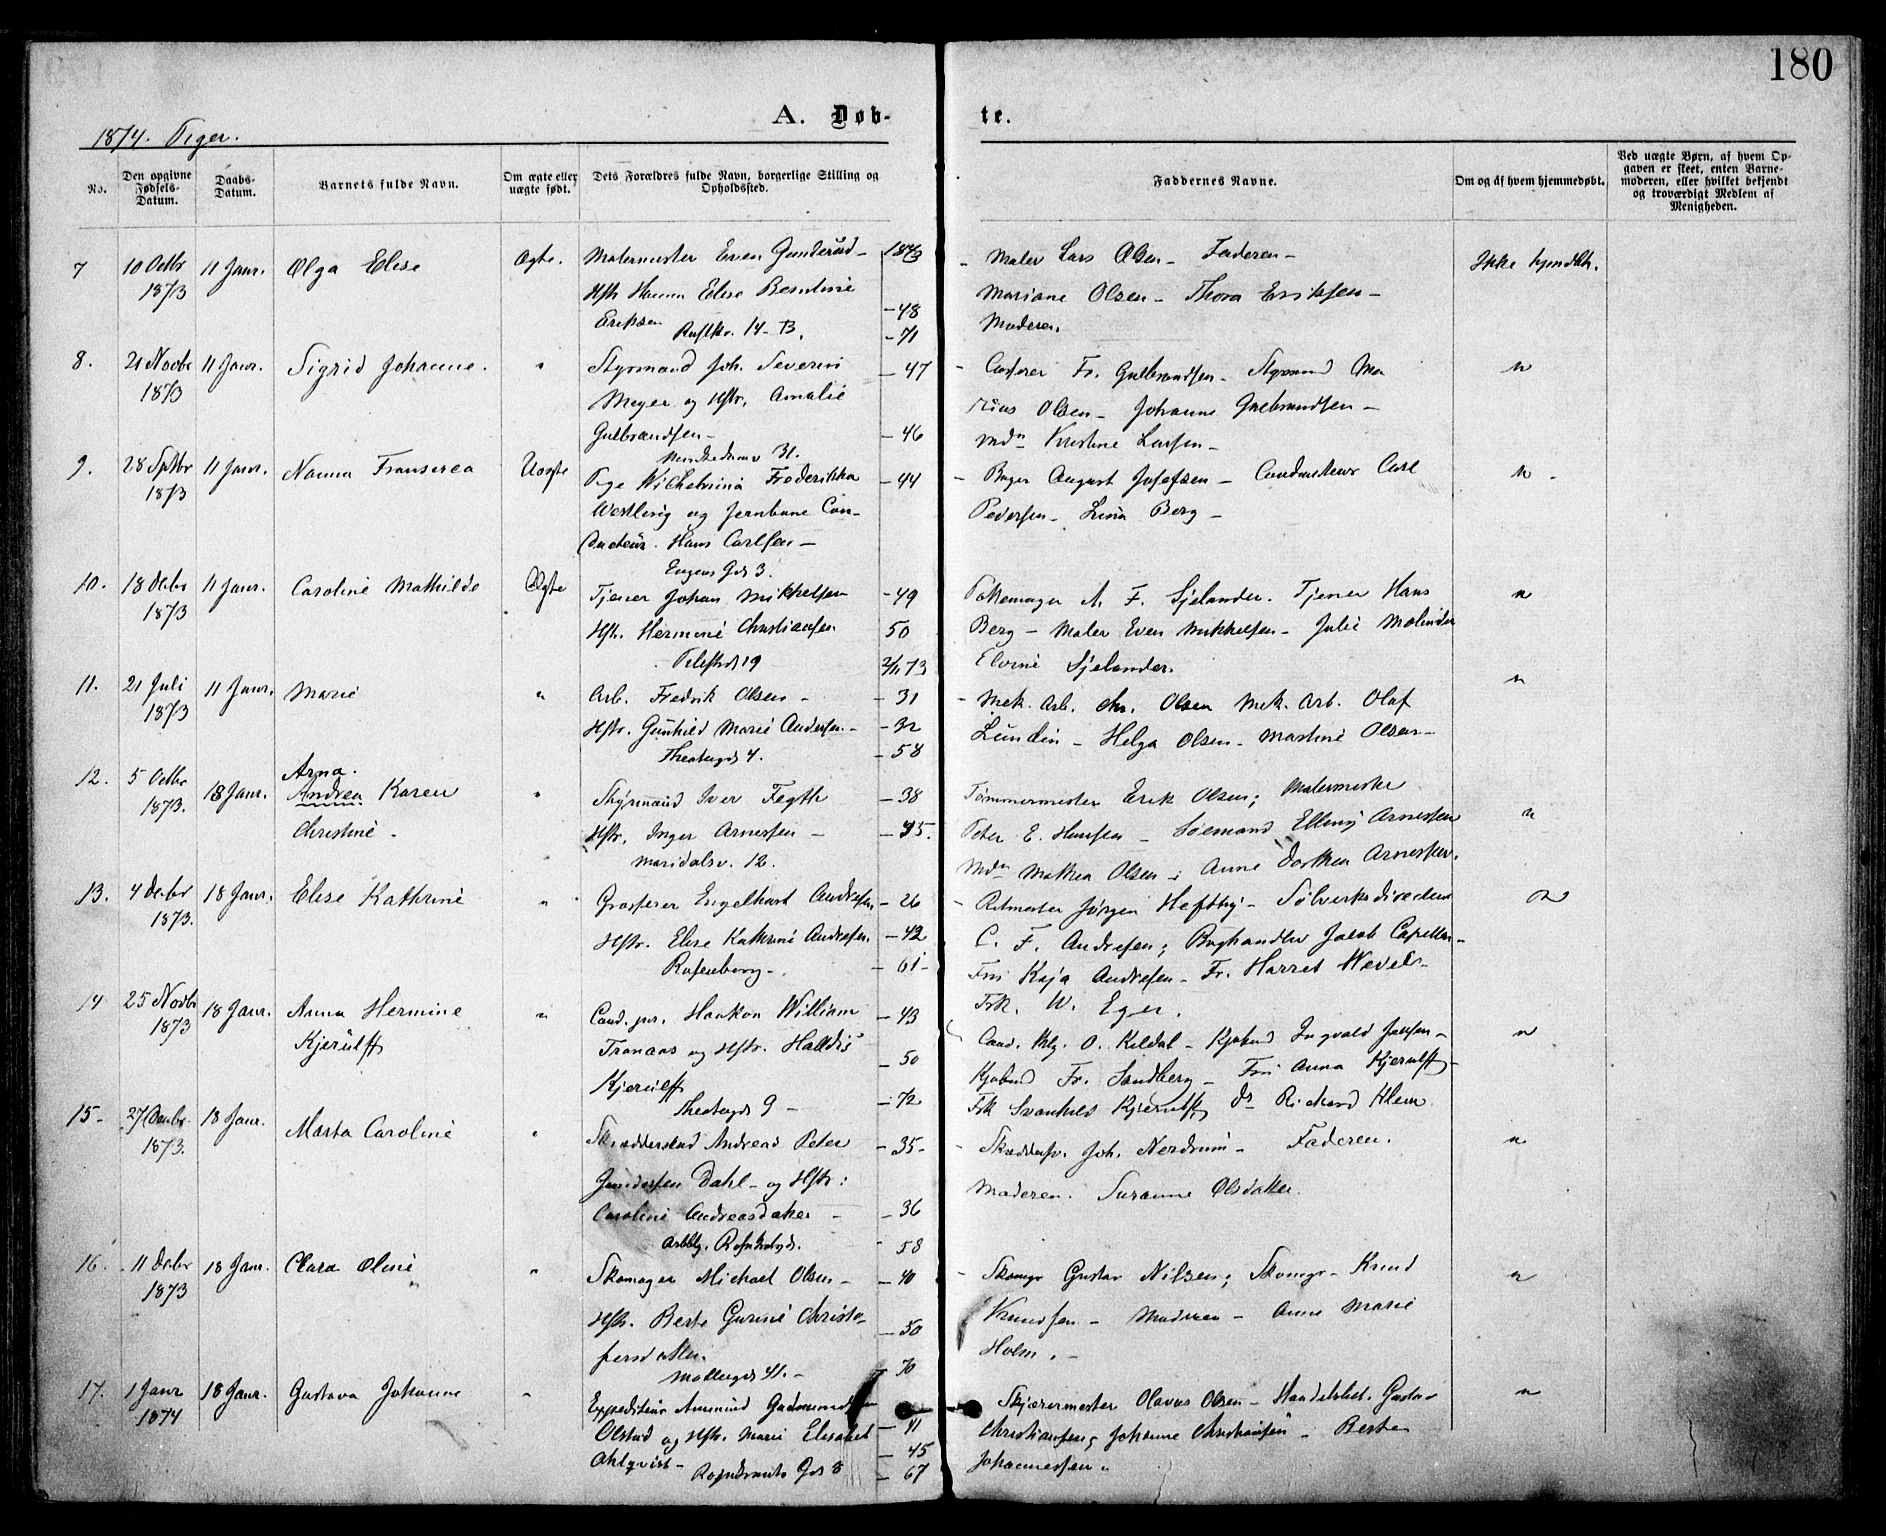 180
A. Døb-
te.
1874. Piger.
No.
Den opgivne Fødsels-Datum.
Daabs-Datum.
Barnets fulde Navn.
Om ægte eller uægte født.
Dets Forældres fulde Navn, borgerlige Stilling og Opholdssted.
Faddernes Navne.
Om og af hvem hjemmedøbt.
Ved uægte Børn, af hvem Opgaven er skeet, enten Barnemoderen, eller hvilket bekjendt og troværdigt Medlem af Menigheden.
7 10 Octbr 11 Janr. Olga Elise Ægte. Malermester Even Gunderud - 1873 - Maler Lars Olsen - Faderen - Ikke hjmdøbt.
1873 Hstr Hanna Elise Berntine - 48 Mariane Olsen - Thora Eriksen -
Eriksen 14 - B. - 71 Moderen.
8. 21 Novbr 11 Janr. Sigrid Johanne. " Styrmand Joh. Severin - 47 - Fr. Gulbrandsen - Styrmand Ma "
1873 Meyer og Hstr. Amalie rius Olsen - Johanne Gulbrandsen -
Gulbrandsen - - 46 Mdm Kristine Larsen -
31.
9. 28 Septbr 11 Janr. Nanna Uægte Pige Wilhelmina Frederikka - 44 - Bager August Josefsen - Conducteur Carl " .
1873 Westling og Jernbane Con- Pedersen - Lina Berg -
ducteur. Hans Carlsen -
Eugens Gd 3.
10. 18 Decbr 11 Janr. Caroline Mathilde Ægte Tjener Johan Mikkelsen - 49 A. F. Sjelander. Tjener Hans "
1873 Hstr. Hermine Christiansen 50 Berg - Maler Even Mikkelsen - Julie Molinder
Pilestrd 19 2/11 73 Elvine Sjelander.
11. 21 Juli 11 Janr. Marie " Arb. Fredrik Olsen - - 31 - Mek. Arb. Chr. Olsen Mek. Arb. Olaf "
1873 Hstr. Gunhild Marie Andersen - - 32 Lundin - Helga Olsen - Martine Olsen -
Theatergd 4. - 58
12. 5 Octbr 18 Janr. Arna.
1873. Andrea Karen " Styrmand Iver Fegth - 38 Tømmermester Erik Olsen; Malermester "
Christine - Hstr. Inger Arnesen - - 35. Peter E. Hansen - Sømand Elling Arnesen
Maridalsv. 12. Mdm Mathea Olsen - Anne Dorthea Arnesen.
13. 4 Decbr 18 Janr. Elise Kathrine " Grosserer Engelhart Andresen - 26 - Ritmester Jørgen Heftye - Sølvverksdirecteur "
1873. Hstr. Elise Kathrine Andresen. - 42 C. F. Andresen; Boghandler Jacob Cappelen -
Rosenborg - - 61 - Fru Kaja Andresen - Fr. Harriet Wedel -
Frk. W. Eger.
14 25 Novbr 18 Janr. Anna Hermine " Cand. jur. Haakon William - 43 Cand. O. Keldal - Kjøbmd Ingvald Jensen - "
1873 Kjerulff Tranaas og Hstr. Halldis - 50 Kjøbmd Fr. Sandberg - Fru Anna Kjerulff -
Kjerulff Frk Svanhild Kjerulff Dr Richard Klem
Theatergd 9 - - 72
15 - 27 18 Janr. Marta Caroline " Andreas Peter - 35 - - Skrædder Joh. Nordrum - Faderen. "
1873. Gundersen Dahl - og Hstr: Moderen. Susanne Olsdatter.
Caroline Andreasdatter - - 36
58
16. 11 Decbr 18 Janr. Clara Oline " Skomager Michael Olsen - - 40 - Skomgr Gustav Nilsen; Skomgr - Knud "
1873 Hstr. Berte Gurine Christo- - 50 Knudsen - Moderen - Anne Marie
fersdatter. Holm. -
Møllergd 41. - 70
17. 1 Janr 18 Janr. Gustava Johanne " Expediteur Amund Gudmundsen Skjærermester Olavus Olsen - Handelsbet. Gustav "
1874 Olstad og Hstr. Marie Elisabet - 41 Christiansen; Johanne Christiansen - Berte
Ahlqvist - - 45 Johannessen.
Gd 8 - 67